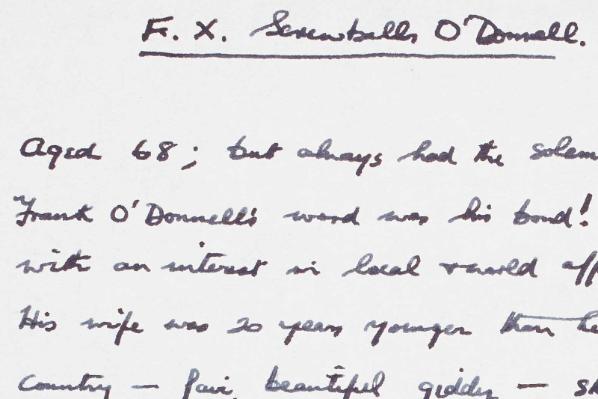 F. X. Screwballs O'Donnell.
Aged 68; but always had the solem
Frank O'Donnell's word was his bond!
with an interest in local & world aff
His wife was 20 years younger than he
Country — fair, beautiful giddy — sh